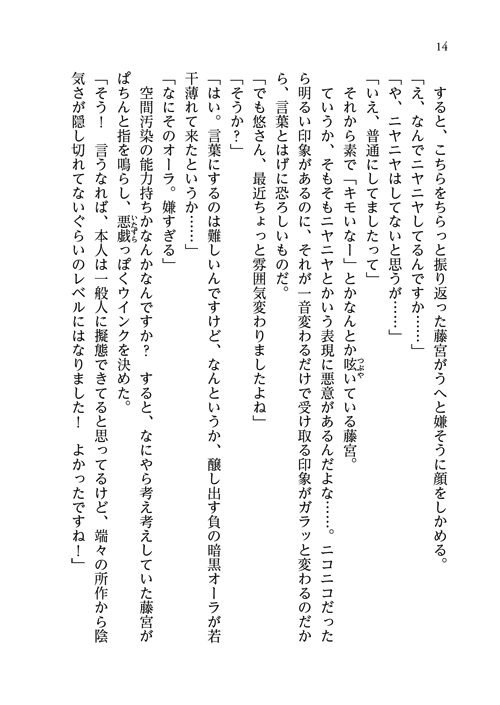 14
すると、こちらをちらっと振り返った藤宮がうへと嫌そうに顔をしかめる。
「え、なんでニヤニヤしてるんですか……」
「や、ニヤニヤはしてないと思うが……」
「いえ、普通にしてましたって」
それから素で「キモいなー」とかなんとか呟いている藤宮。
ていうか、そもそもニヤニヤとかいう表現に悪意があるんだよな……。ニコニコだった
ら明るい印象があるのに、それが一音変わるだけで受け取る印象がガラッと変わるのだか
ら、言葉とはげに恐ろしいものだ。
「でも悠さん、最近ちょっと雰囲気変わりましたよね」
「そうか？」
「はい。言葉にするのは難しいんですけど、なんというか、醸し出す負の暗黒オーラが若
干薄れて来たというか……」
「なにそのオーラ。嫌すぎる」
空間汚染の能力持ちかなんかなんですか？　すると、なにやら考え考えしていた藤宮が
ぱちんと指を鳴らし、悪戯っぽくウインクを決めた。
「そう！　言うなれば、本人は一般人に擬態できてると思ってるけど、端々の所作から陰
気さが隠し切れてないぐらいのレベルにはなりました！　よかったですね！」
つぶや
いたずら